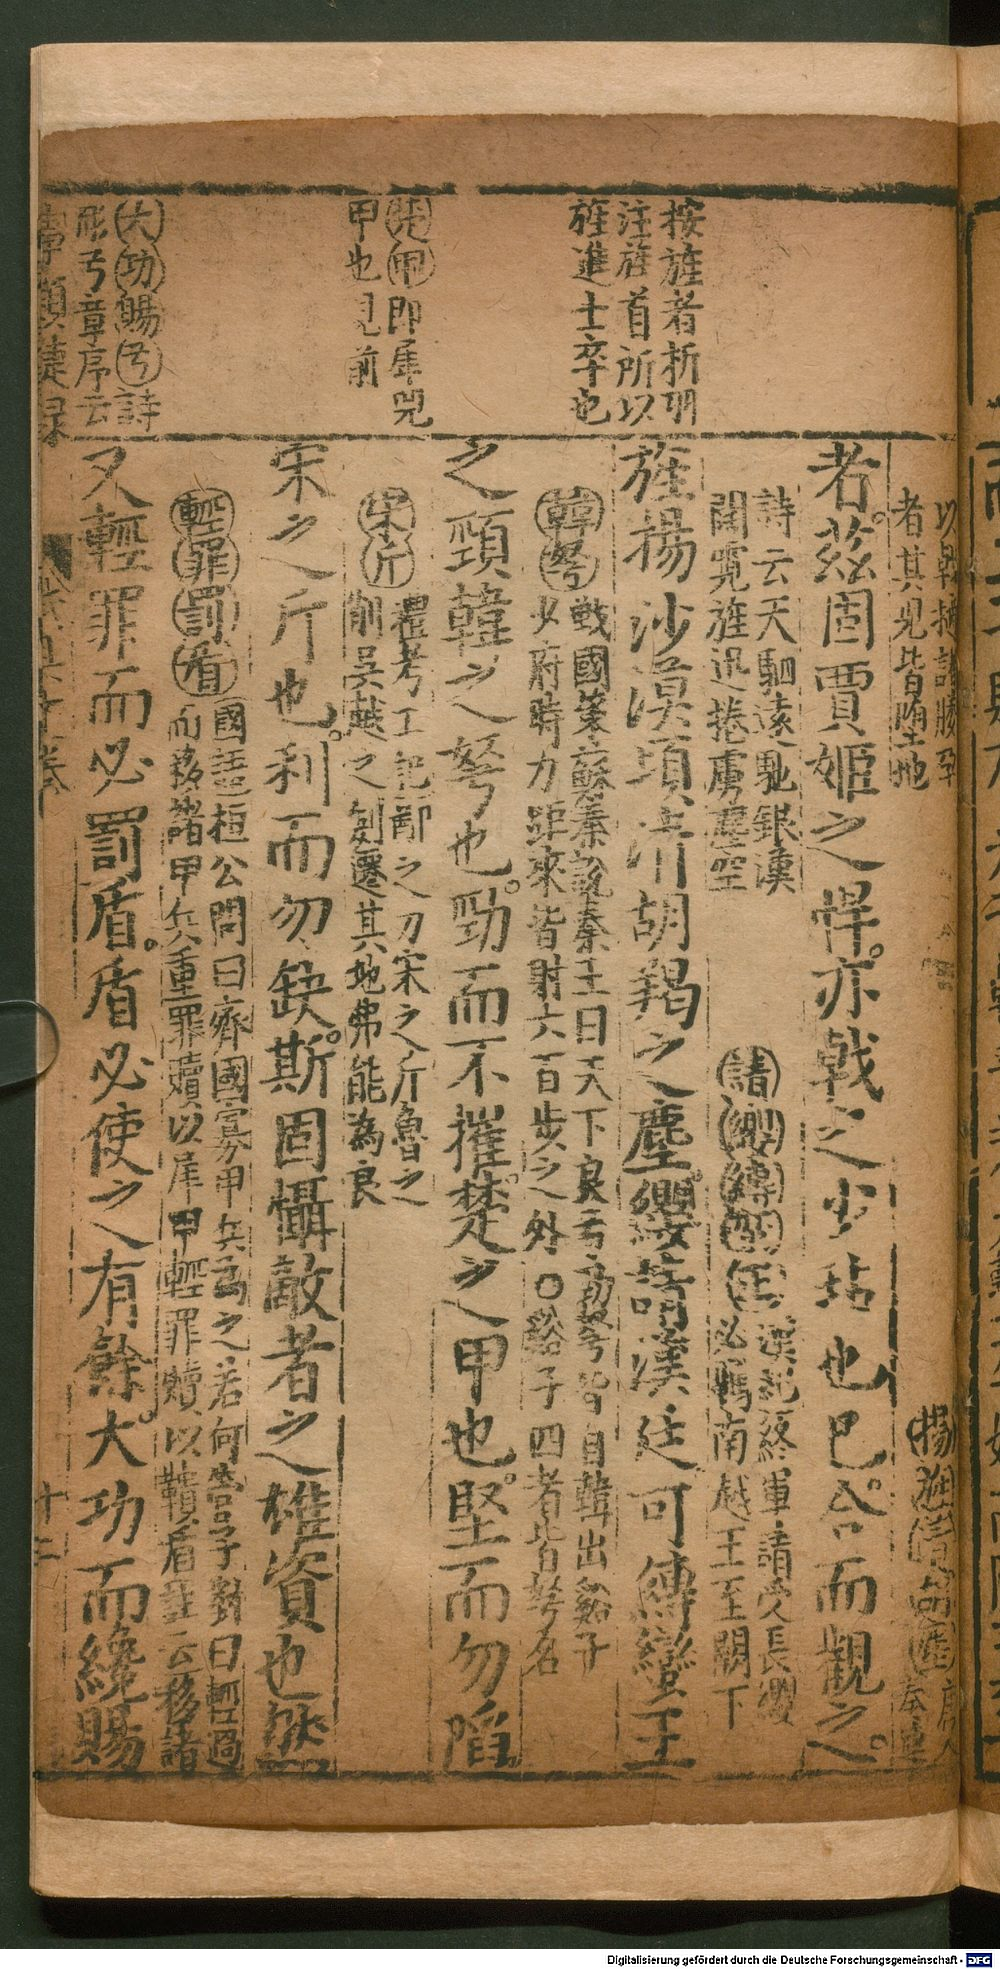 按旌者析羽
注旌首所以
旌進士卒也
楚甲即犀兕
甲也見前
大功賜弓詩
彤弓章序云
者其見皆墮地
者。茲固賈姬之悍。亦戟之少玷也已。合而觀之。
詩云天駟遠馳銀漢
闊霓旌迅捲虜塵空
請纓縛
漢 終軍請受長纓
必羈南越王至闕下
旌揚沙漠頃清胡羯之塵。纓請漢廷可縛蠻王
之頸韓之弩也。勁而不摧。楚之甲也。堅而勿陷
韓弩
戰國策蘇秦說秦王曰天下良弓勁弩皆自韓出谿子
少府時力距來皆射六百步之外〇谿子四者皆弩名
宋斤
禮考工記鄭之刀宋之斤魯之
削吳越之劍遷其地弗能為良
宋之斤也。利而勿缺。斯固懾敵者之雄資也然
又輕罪而必罰盾。盾必使之有餘。大功而纔賜
輕罪罰盾
國語桓公問曰齊國寡甲兵為之若何管子對曰輕過
而移諸甲兵重罪贖以犀甲輕罪贖以鞼盾註云移諸
十三
Digitalisierung gefördert durch die Deutsche Forschungsgemeinschaft - DFG